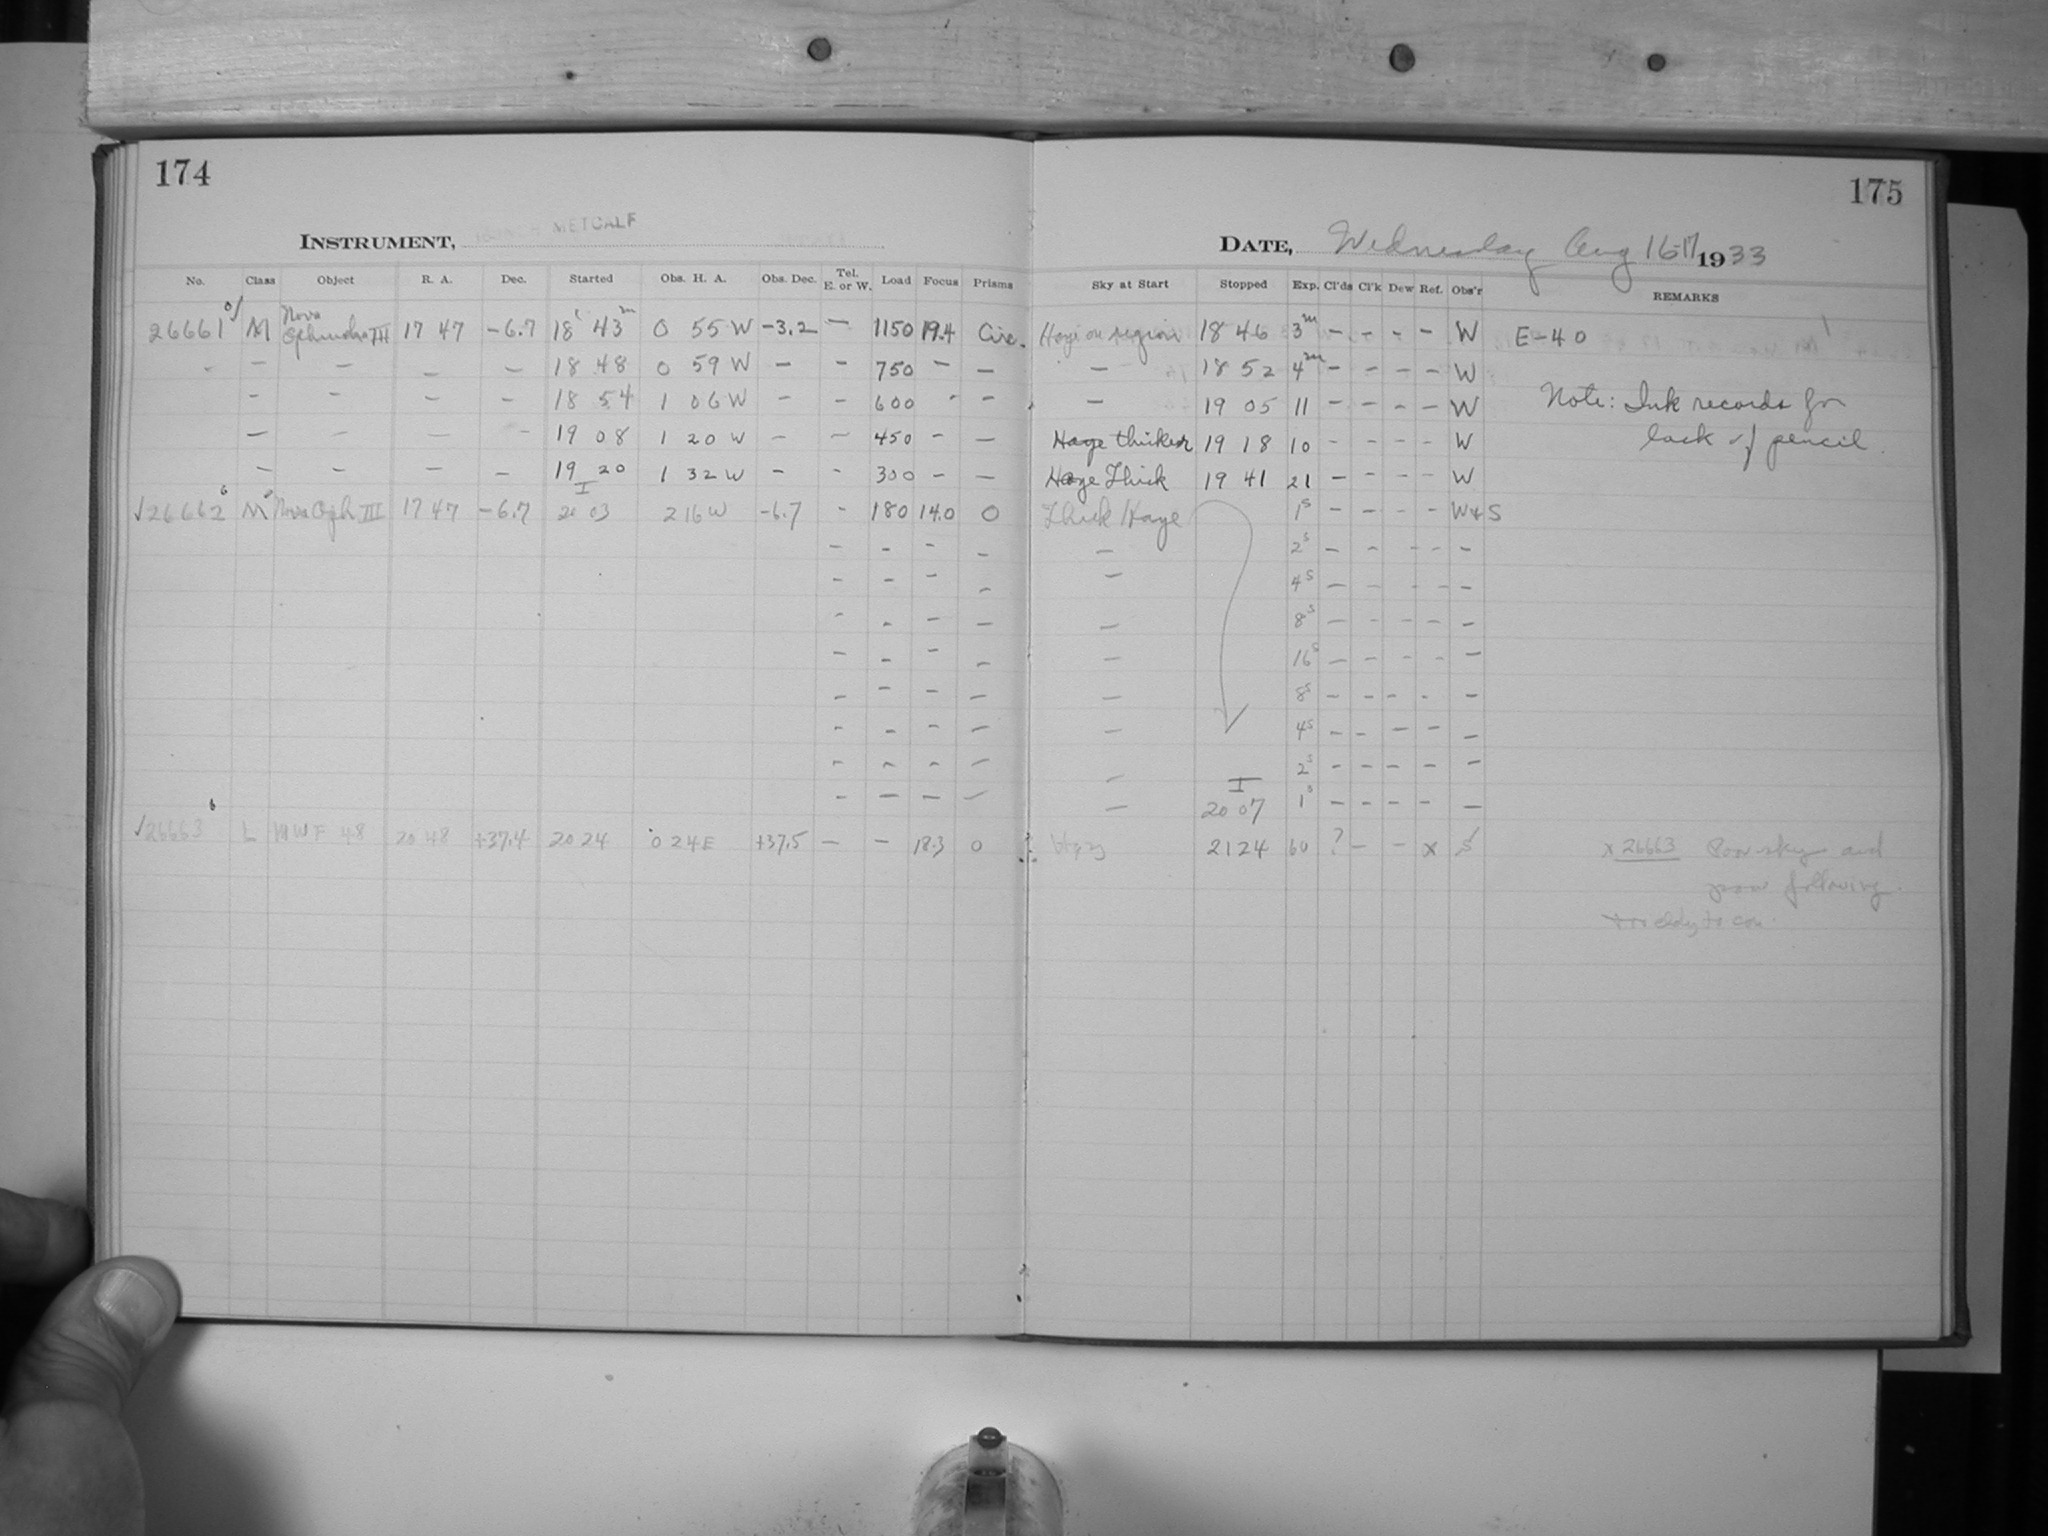 174
175
INSTRUMENT, METCALF
DATE, Wednesday Aug 16-17 1933
No. Class Object R. A. Dec. Started Obs. H. A. Obs. Dec. Tel. E. or W. Load Focus Prisms Sky at Start Stopped Exp. Cl'ds Cl'k Dew Ref. Obs'r REMARKS
26661 M Nova Ophiuchi III 17 47 -6.7 18 43m 0 55 W -3.2 - 1150 19.4 Circ. Haze on region 18 46 3m - - - - W E-40
- - - - - 18 48 0 59 W - - 750 - - - 18 52 4m - - - - W
- - - - 18 54 1 06 W - - 600 - - - 19 05 11 - - - - W Note: Ink records for
- - - - 19 08 1 20 W - - 450 - - Haze thicker 19 18 10 - - - - W lack of pencil.
- - - - 19 20 1 32 W - - 300 - - Haze Thick 19 41 21 - - - - W
I
√26662 M Nova Oph III 17 47 -6.7 20 03 2 16 W -6.7 - 180 14.0 0 Thick Haze 1s - - - - W+S
- - - - - 2s - - - - -
- - - - - 4s - - - - -
- - - - - 8s - - - - -
- - - - - 16s - - - - -
- - - - - 8s - - - - -
- - - - - 4s - - - - -
- - - - - 2s - - - - -
I
- - - - - 20 07 1s - - - - -
√26663 L MWF 48 20 48 +37.4 20 24 0 24 E +37.5 - - 18.3 0 Hazy 21 24 60 ? - - x S x 26663 Poor sky and
poor following.